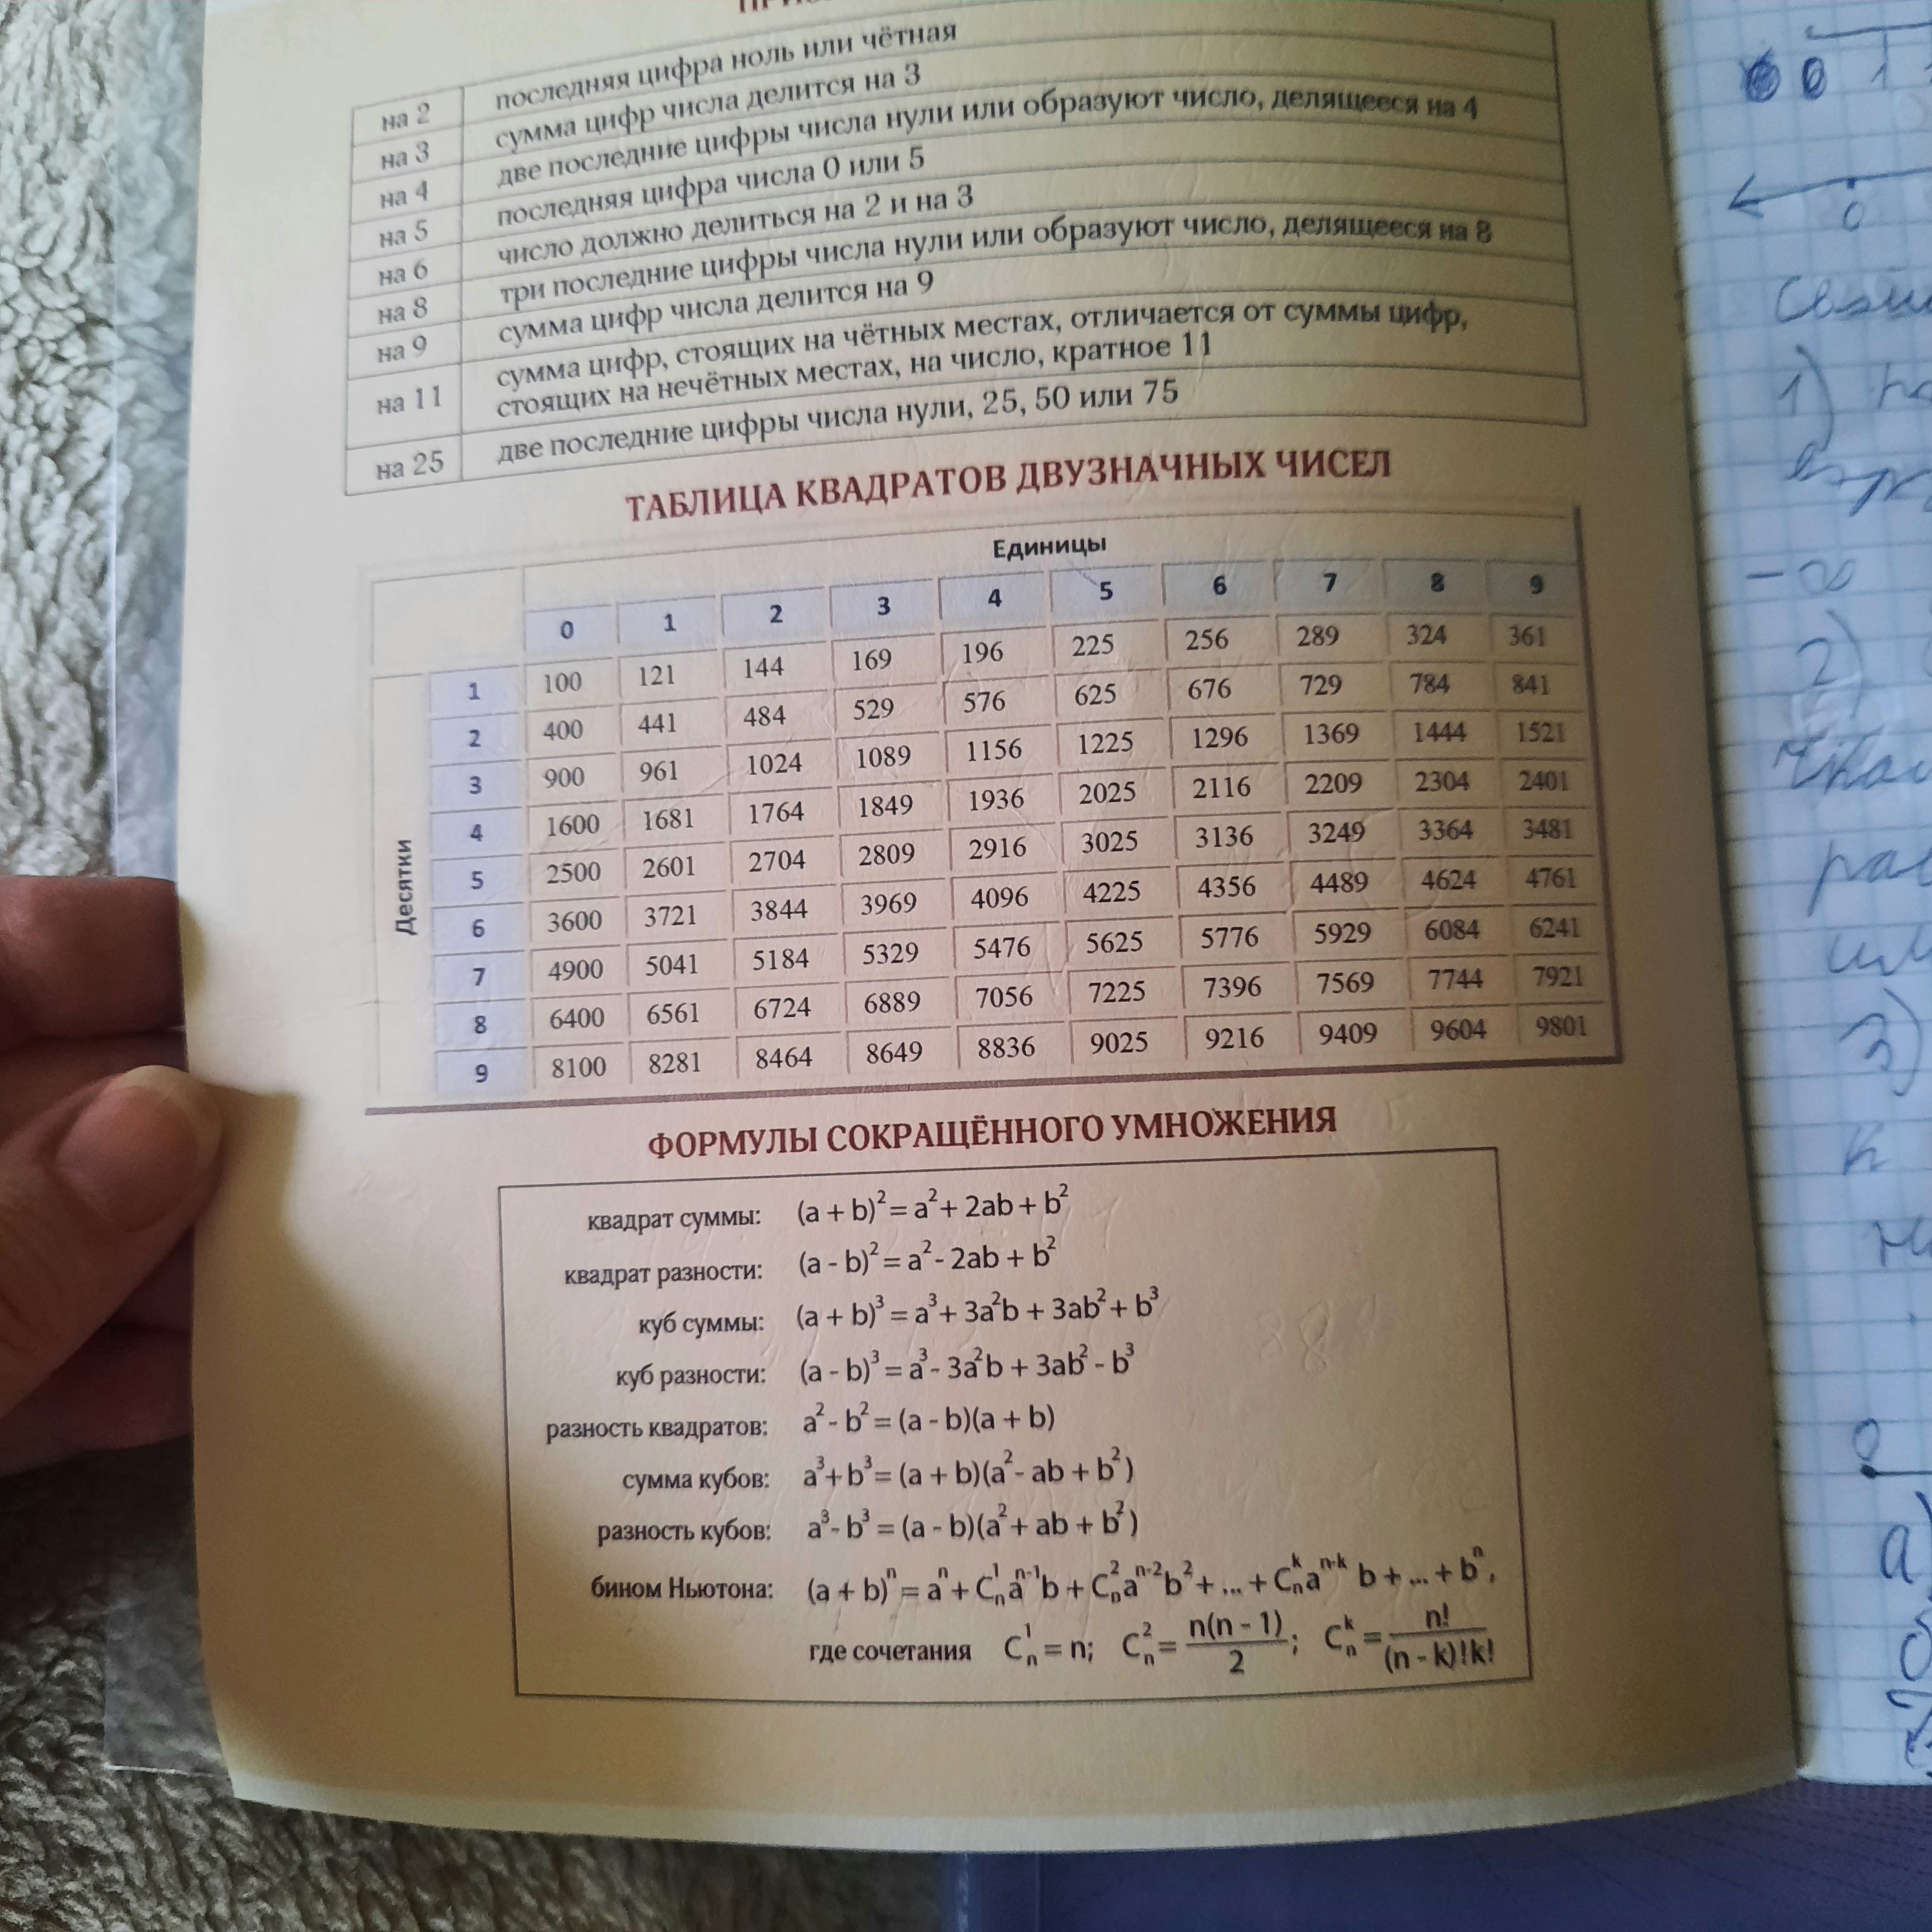 на 2 последняя цифра ноль или чётная
на 3 сумма цифр числа делится на 3
на 4 две последние цифры числа нули или образуют число, делящееся на 4
на 5 последняя цифра числа 0 или 5
на 6 число должно делиться на 2 и на 3
на 8 три последние цифры числа нули или образуют число, делящееся на 8
на 9 сумма цифр числа делится на 9
на 11 сумма цифр, стоящих на чётных местах, отличается от суммы цифр,
стоящих на нечётных местах, на число, кратное 11
на 25 две последние цифры числа нули, 25, 50 или 75
ТАБЛИЦА КВАДРАТОВ ДВУЗНАЧНЫХ ЧИСЕЛ
Единицы
0 1 2 3 4 5 6 7 8 9
Десятки
1 100 121 144 169 196 225 256 289 324 361
2 400 441 484 529 576 625 676 729 784 841
3 900 961 1024 1089 1156 1225 1296 1369 1444 1521
4 1600 1681 1764 1849 1936 2025 2116 2209 2304 2401
5 2500 2601 2704 2809 2916 3025 3136 3249 3364 3481
6 3600 3721 3844 3969 4096 4225 4356 4489 4624 4761
7 4900 5041 5184 5329 5476 5625 5776 5929 6084 6241
8 6400 6561 6724 6889 7056 7225 7396 7569 7744 7921
9 8100 8281 8464 8649 8836 9025 9216 9409 9604 9801
ФОРМУЛЫ СОКРАЩЁННОГО УМНОЖЕНИЯ
квадрат суммы: (a + b)² = a² + 2ab + b²
квадрат разности: (a - b)² = a² - 2ab + b²
куб суммы: (a + b)³ = a³ + 3a²b + 3ab² + b³
куб разности: (a - b)³ = a³ - 3a²b + 3ab² - b³
разность квадратов: a² - b² = (a - b)(a + b)
сумма кубов: a³ + b³ = (a + b)(a² - ab + b²)
разность кубов: a³ - b³ = (a - b)(a² + ab + b²)
бином Ньютона: (a + b)ⁿ = aⁿ + Cₙ¹aⁿ⁻¹b + Cₙ²aⁿ⁻²b² + ... + Cₙᵏaⁿ⁻ᵏ b + ... + bⁿ,
где сочетания Cₙ¹ = n; Cₙ² = n(n - 1)/2; Cₙᵏ = n!/(n - k)!k!
0
1)
-∞
2)
3)
к
0
а)